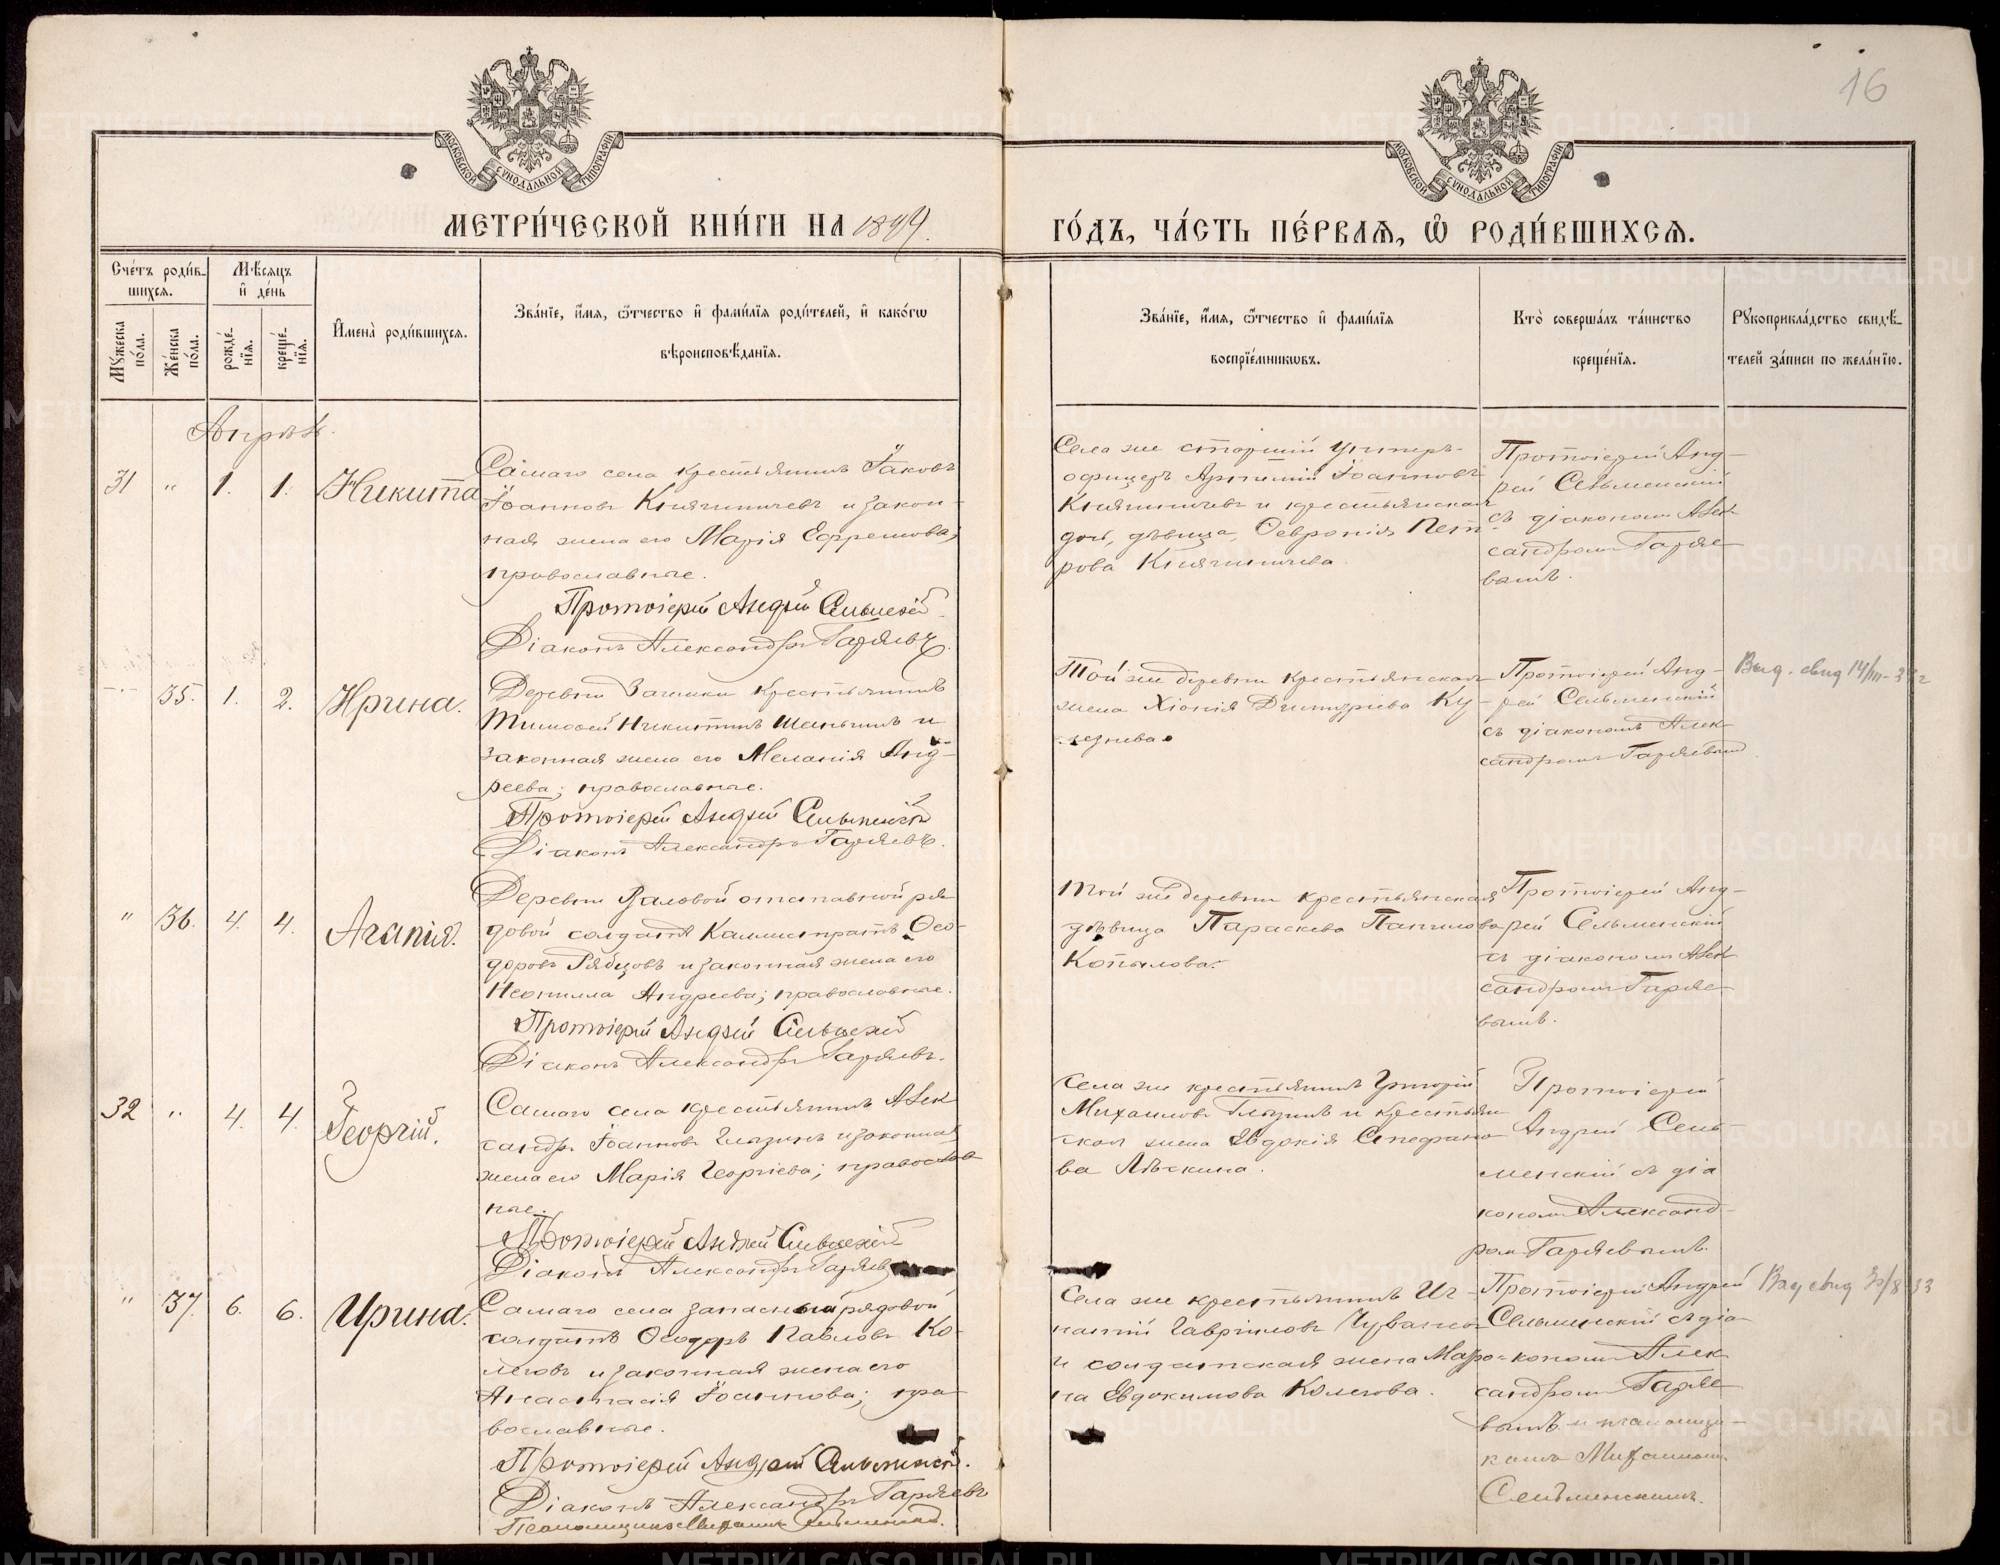 16
МОСКОВСКОЙ СѴНОДАЛЬНОЙ ТИПОГРАФІИ
МОСКОВСКОЙ СѴНОДАЛЬНОЙ ТИПОГРАФІИ
МЕТРИ́ЧЕСКОЙ КНИ́ГИ НА 1899.
ГО́ДЪ, ЧА́СТЬ ПЕ́РВАѦ, Ѡ҆ РОДИ́ВШИХСѦ.
Сче́тъ роди́в-
шихсѧ.
Мꙋ́жеска по́ла.
Же́нска по́ла.
Мѣ́сѧцъ
и҆ де́нь
рожде́-нїѧ.
креще́-нїѧ.
И҆мена̀ роди́вшихсѧ.
Зва́нїе, и҆́мѧ, ѻ҆́тчество и҆ фамѝлїѧ роди́телей, и҆ како́гѡ
вѣроисповѣ́данїѧ.
Зва́нїе, и҆́мѧ, ѻ҆́тчество и҆ фамѝлїѧ
воспрїе́мникѡвъ.
Кто̀ соверша́лъ та́инство
креще́нїѧ.
Рꙋкоприкла́дство свидѣ́-
телей за́писи по жела́нїю.
Апрѣль.
31 " 1. 1. Никита
Самаго села крестьянинъ Іаковъ
Іоанновъ Княгиничевъ и закон-
ная жена его Марія Ефремова;
православные.
Протоіерей Андрей Сельменскій
Діаконъ Александръ Гаряевъ.
Села же старшій унтеръ-
офицеръ Артемій Іоанновъ
Княгиничевъ и крестьянская
дочь, дѣвица, Февронія Пет-
рова Княгиничева.
Протоіерей Анд-
рей Сельменскій
съ діакономъ Алек-
сандромъ Гаряе-
вымъ.
35. 1. 2. Ирина.
Деревни крестьянинъ
Тимофей Никитинъ Шаньгинъ и
законная жена его Меланія Анд-
реева; православные.
Протоіерей Андрей Сельменскій
Діаконъ Александръ Гаряевъ.
Той же деревни крестьянская
жена Хіонія Димитріева Ку-
лезнева
Протоіерей Анд-
рей Сельменскій
съ діакономъ Алек-
сандромъ Гаряевымъ
Выд. свид 14/III-
" 36. 4. 4. Агапія.
Деревни отставной ря-
довой солдатъ Каллистратъ Ѳео-
доровъ Рябцовъ и законная жена его
Неонилла Андреева; православные.
Протоіерей Андрей Сельменскій
Діаконъ Александръ Гаряевъ.
Той же деревни крестьянская
дѣвица Параскева Панилова
Копылова.
Протоіерей Анд-
рей Сельменскій
съ діакономъ Алек-
сандромъ Гаряе-
вымъ.
32 " 4. 4. Георгій.
Самаго села крестьянинъ Алек-
сандръ Іоанновъ Глызинъ и законная
жена его Марія Георгіева; православ-
ные.
Протоіерей Андрей Сельменскій
Діаконъ Александръ Гаряевъ
Села же крестьянинъ Григорій
Михаиловъ Глызинъ и крестьян-
ская жена Евдокія Стефано-
ва Лѣскина.
Протоіерей
Андрей Сель-
менскій съ діа-
кономъ Александ-
ромъ Гаряевымъ.
" 37. 6. 6. Ирина.
Самаго села запасный рядовой
солдатъ Ѳеодоръ Павловъ Ко-
леговъ и законная жена его
Анастасія Іоаннова; пра-
вославные.
Протоіерей Андрей Сельменскій.
Діаконъ Александръ Гаряевъ
Псаломщикъ Михаилъ Сельменскій.
Села же крестьянинъ Иг-
натій Гавриловъ Чуваш
и солдатская жена Мар-
на Евдокимова Колегова.
Протоіерей Андрей
Сельменскій съ діа-
кономъ Алек-
сандромъ Гаряе-
вымъ и псаломщи-
комъ Михаиломъ
Сельменскимъ.
Выд свид 33